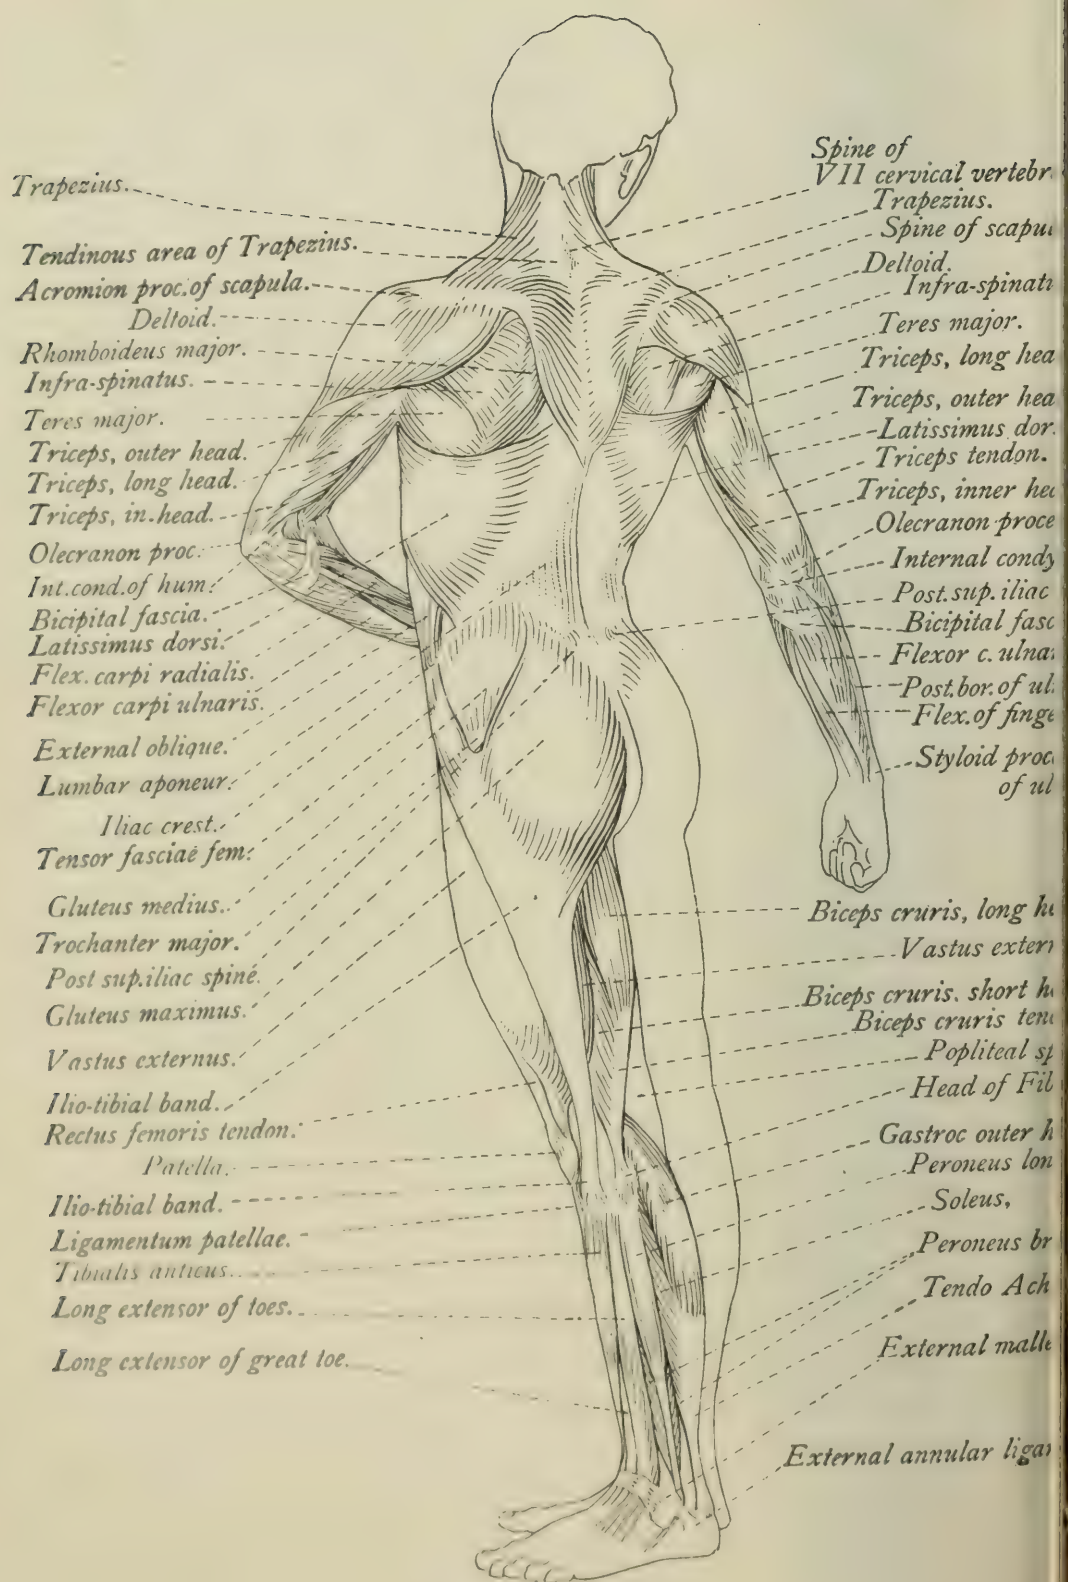 Trapezius.
Tendinous area of Trapezius.
Acromion proc. of scapula.
Deltoid.
Rhomboideus major.
Infra-spinatus.
Teres major.
Triceps, outer head.
Triceps, long head.
Triceps, in. head.
Olecranon proc.
Int. cond. of hum.
Bicipital fascia.
Latissimus dorsi.
Flex. carpi radialis.
Flexor carpi ulnaris.
External oblique.
Lumbar aponeur.
Iliac crest.
Tensor fasciae fem.
Gluteus medius.
Trochanter major.
Post sup. iliac spine.
Gluteus maximus.
Vastus externus.
Ilio-tibial band.
Rectus femoris tendon.
Patella.
Ilio-tibial band.
Ligamentum patellae.
Tibialis anticus.
Long extensor of toes.
Long extensor of great toe.
Spine of
VII cervical vertebr
Trapezius.
Spine of scapu
Deltoid.
Infra-spinat
Teres major.
Triceps, long hea
Triceps, outer hea
Latissimus dor
Triceps tendon.
Triceps, inner he
Olecranon proce
Internal condy
Post. sup. iliac
Bicipital fasc
Flexor c. ulna
Post. bor. of ul
Flex. of finge
Styloid proc
of ul
Biceps cruris, long h
Vastus extern
Biceps cruris. short h
Biceps cruris ten
Popliteal sp
Head of Fib
Gastroc outer h
Peroneus lon
Soleus,
Peroneus br
Tendo Ach
External malle
External annular liga